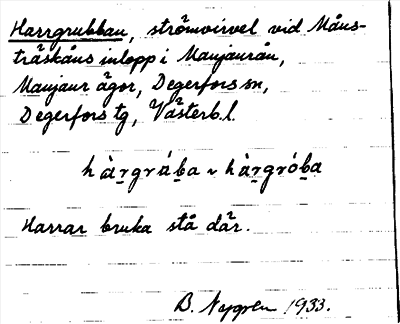 Harrgrubban, strömvirvel vid Måns-
träskåns inlopp i Maujaurån,
Maujaur ägor, Degerfors sn,
Degerfors tg, Västerb. l.
hàrgrába ~ hàrgróba
Harrar bruka stå där.
B. Nygren 1933.